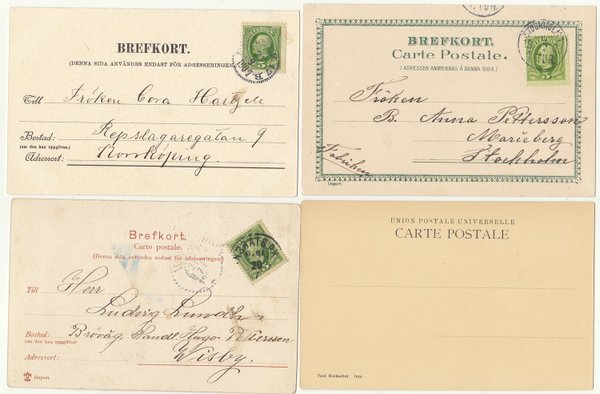 BREFKORT.
(DENNA SIDA ANVÄNDES ENDAST FÖR ADRESSERINGEN)
Till Fröken Cora
Bostad: Repslagaregatan 9
(om den kan uppgifvas)
Adressort: Norrköping.
BREFKORT.
Carte Postale.
(ADRESSEN ANBRINGAS Å DENNA SIDA.)
Fröken
B. Anna Pettersson
Marieberg
Stockholm
Fabriken
Import
Brefkort.
Carte postale.
(Denna sida användes endast för adresseringen)
Till Herr
Ludvig Lundh
Bostad: Handl. Hugo Pettersson
(om den kan uppgifvas)
Adressort: Wisby.
Import
UNION POSTALE UNIVERSELLE
CARTE POSTALE